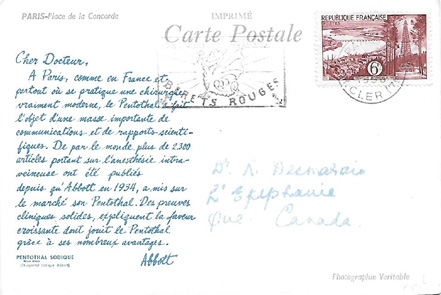 PARIS-Place de la Concorde
IMPRIMÉ
Carte Postale
Cher Docteur,
A Paris, comme en France et
partout où se pratique une chirurgie
vraiment moderne, le Pentothal a fait
l'objet d'une masse importante de
communications et de rapports scienti-
fiques. De par le monde plus de 2300
articles portant sur l'anesthésie intra-
veineuse ont été publiés
depuis qu'Abbott en 1934, a mis sur
le marché son Pentothal. Des preuves
cliniques solides, expliquent la faveur
croissante dont jouit le Pentothal
grâce à ses nombreux avantages.
Abbott
PENTOTHAL SODIQUE
RÉPUBLIQUE FRANÇAISE
6
ROUGES
Dr.
L'Epiphanie
Que. Canada.
Photographie Véritable